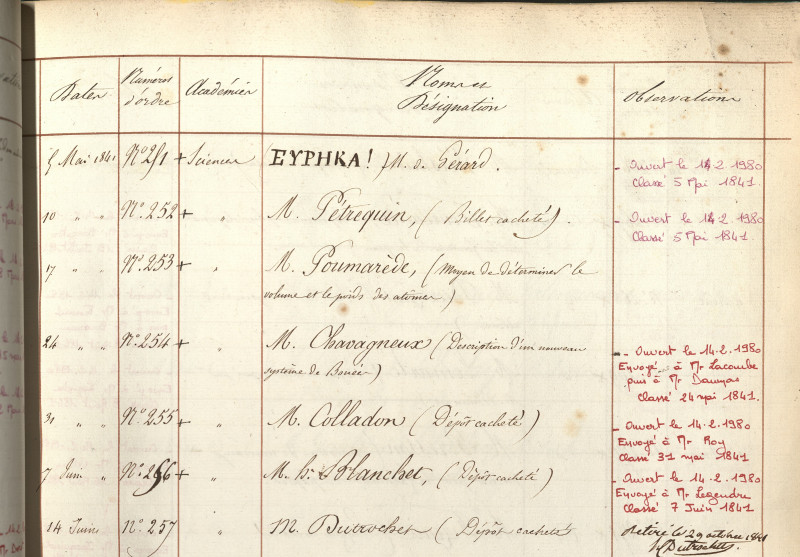 Dates
Numéros d'ordre
Académies
Noms et Désignation
Observations
5 Mai 1841 Nº 251 + Sciences EYPHKA! M. de Gérard. - Ouvert le 14.2.1980
Classé 5 Mai 1841.
10 " " Nº 252 + " M. Pétrequin, (Billet cacheté). - Ouvert le 14.2.1980
Classé 5 Mai 1841.
17 " " Nº 253 + " M. Poumarède, (Moyen de déterminer le
volume et le poids des atômes)
24 " " Nº 254 + " M. Chavagneux (Description d'un nouveau - Ouvert le 14.2.1980
système de Bouée) Envoyé à Mr Lacombe
puis à Mr
Classé 24 mai 1841.
31 " " Nº 255 + " M. Colladon (Dépôt cacheté) - Ouvert le 14.2.1980
Envoyé à Mr Roy
Classé 31 mai 1841
7 Juin " Nº 256 + " M. Blanchet, (Dépôt cacheté) - Ouvert le 14.2.1980
Envoyé à Mr Legendre
Classé 7 Juin 1841
14 Juin Nº 257 " M. Dutrochet (Dépôt cacheté) Retiré le 29 octobre 1841
Dutrochet